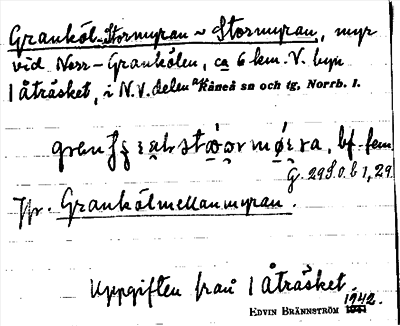 Granköl-Stormyran ~ Stormyran, myr
vid Norr-Grankölen, ca 6 km. V. byn
1 Åträsket, i N.V. delen av Råneå sn och tg, Norrb. l.
bf. fem
G. 29
Jfr. Grankölmellanmyran.
Uppgiften från 1 Åträsket.
1942.
EDVIN BRÄNNSTRÖM 1941